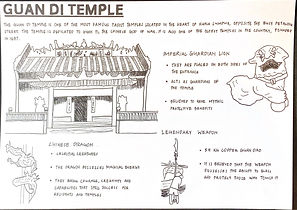 GUAN DI TEMPLE
GUAN DI TEMPLE IS ONE OF THE MOST FAMOUS TAOIST TEMPLES LOCATED IN THE HEART OF KUALA LUMPUR, OPPOSITE THE BUSY PETALING
STREET. THE TEMPLE IS DEDICATED TO GUAN DI, THE CHINESE GOD OF WAR. IT IS ALSO ONE OF THE OLDEST TEMPLES IN THE COUNTRY, FOUNDED
IN
IMPERIAL GUARDIAN LION
• THEY ARE PLACED IN BOTH SIDES
THE ENTRANCE
• ACTS AS GUARDIANS OF
THE TEMPLE
• BELIEVED TO HAVE MYTHIC
PROTECTIVE BENEFITS
CHINESE DRAGON
• CELESTIAL CREATURES
• THE DRAGON POSSESSES MAGICAL ENERGY
• THEY BRING COURAGE, CREATIVITY AND
CAPABILITIES THAT SPELL SUCCESS FOR
RESIDENTS AND TEMPLES
LEGENDARY WEAPON
• 59 KG COPPER GUAN DAO
• IT IS BELIEVED THAT THE WEAPON
POSSESSES THE ABILITY TO BLESS
AND PROTECT THOSE WHO TOUCH IT